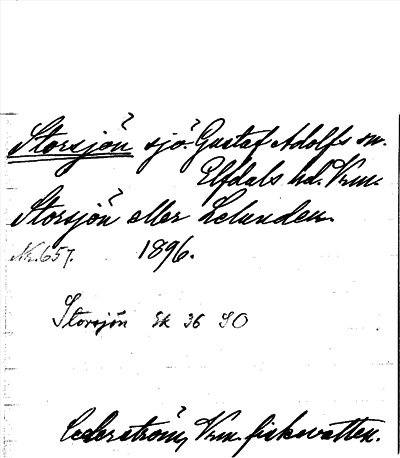 Storsjön sjö. Gustaf Adolfs sn.
Elfdals hd. Vrm.
Storsjön eller Lelunden.
Nr. 657. 1896.
Storsjön Ek 36 SO
Cederström, Vrm. fiskevatten.